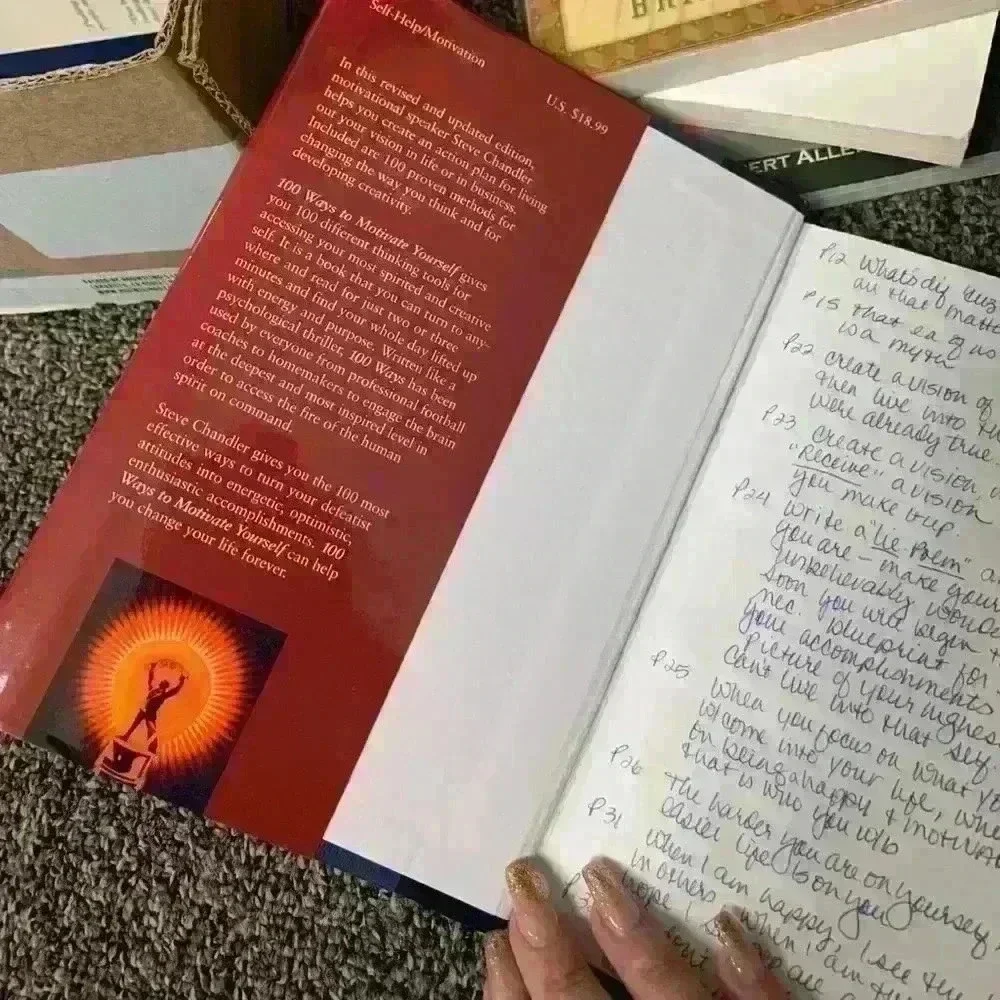 Self-Help/Motivation
U.S. $18.99
In this revised and updated edition,
motivational speaker Steve Chandler
helps you create an action plan for living
out your vision in life or in business.
Included are 100 proven methods for
changing the way you think and for
developing creativity.
100 Ways to Motivate Yourself gives
you 100 different thinking tools for
accessing your most spirited and creative
self. It is a book that you can turn to any-
where and read for just two or three
minutes and find your whole day lifted up
with energy and purpose. Written like a
psychological thriller, 100 Ways has been
used by everyone from professional football
coaches to homemakers to engage the brain
at the deepest and most inspired level in
order to access the fire of the human
spirit on command.
Steve Chandler gives you the 100 most
effective ways to turn your defeatist
attitudes into energetic, optimistic,
enthusiastic accomplishments. 100
Ways to Motivate Yourself can help
you change your life forever.
ERT ALLE
P12 What's
all that matte
P15 that ea of us
is a myth
P22 create a vision of
then live into
were already true.
P23 Create a vision,
"Receive" a vision
you make it up.
P24 write a "Lie Poem" a
you are - make your
unbelievably
soon you will begin
nec. blueprint for
your accomplishments
Picture of your highes
Can't live into that self
P25 when you focus on what yo
welcome into your life, whe
on being a happy & motiva
that is who you will b
P26 The harder you are on yourself,
easier life is on you
P31 when I am happy, I see the
in others. when I am
hope I